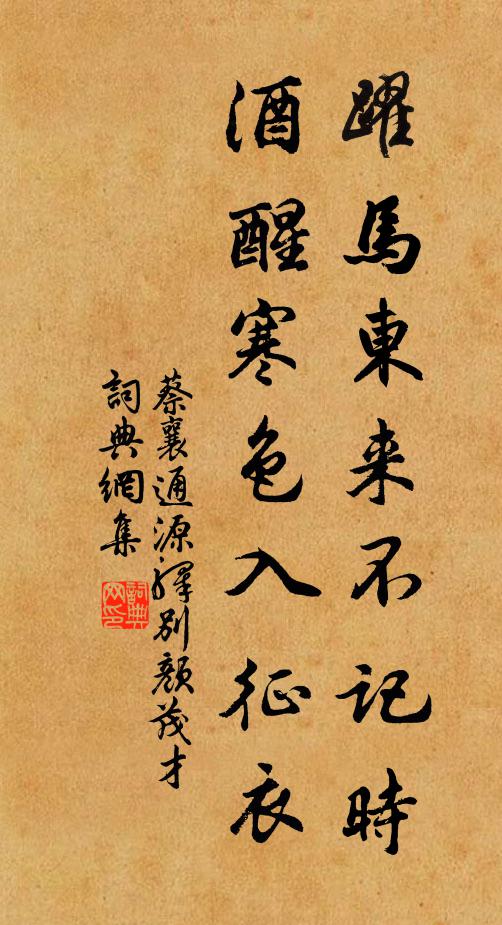 躍馬東来不記時
酒醒寒色入征衣
蔡襄通源驛別顏茂才
詞典網集
詞典網印